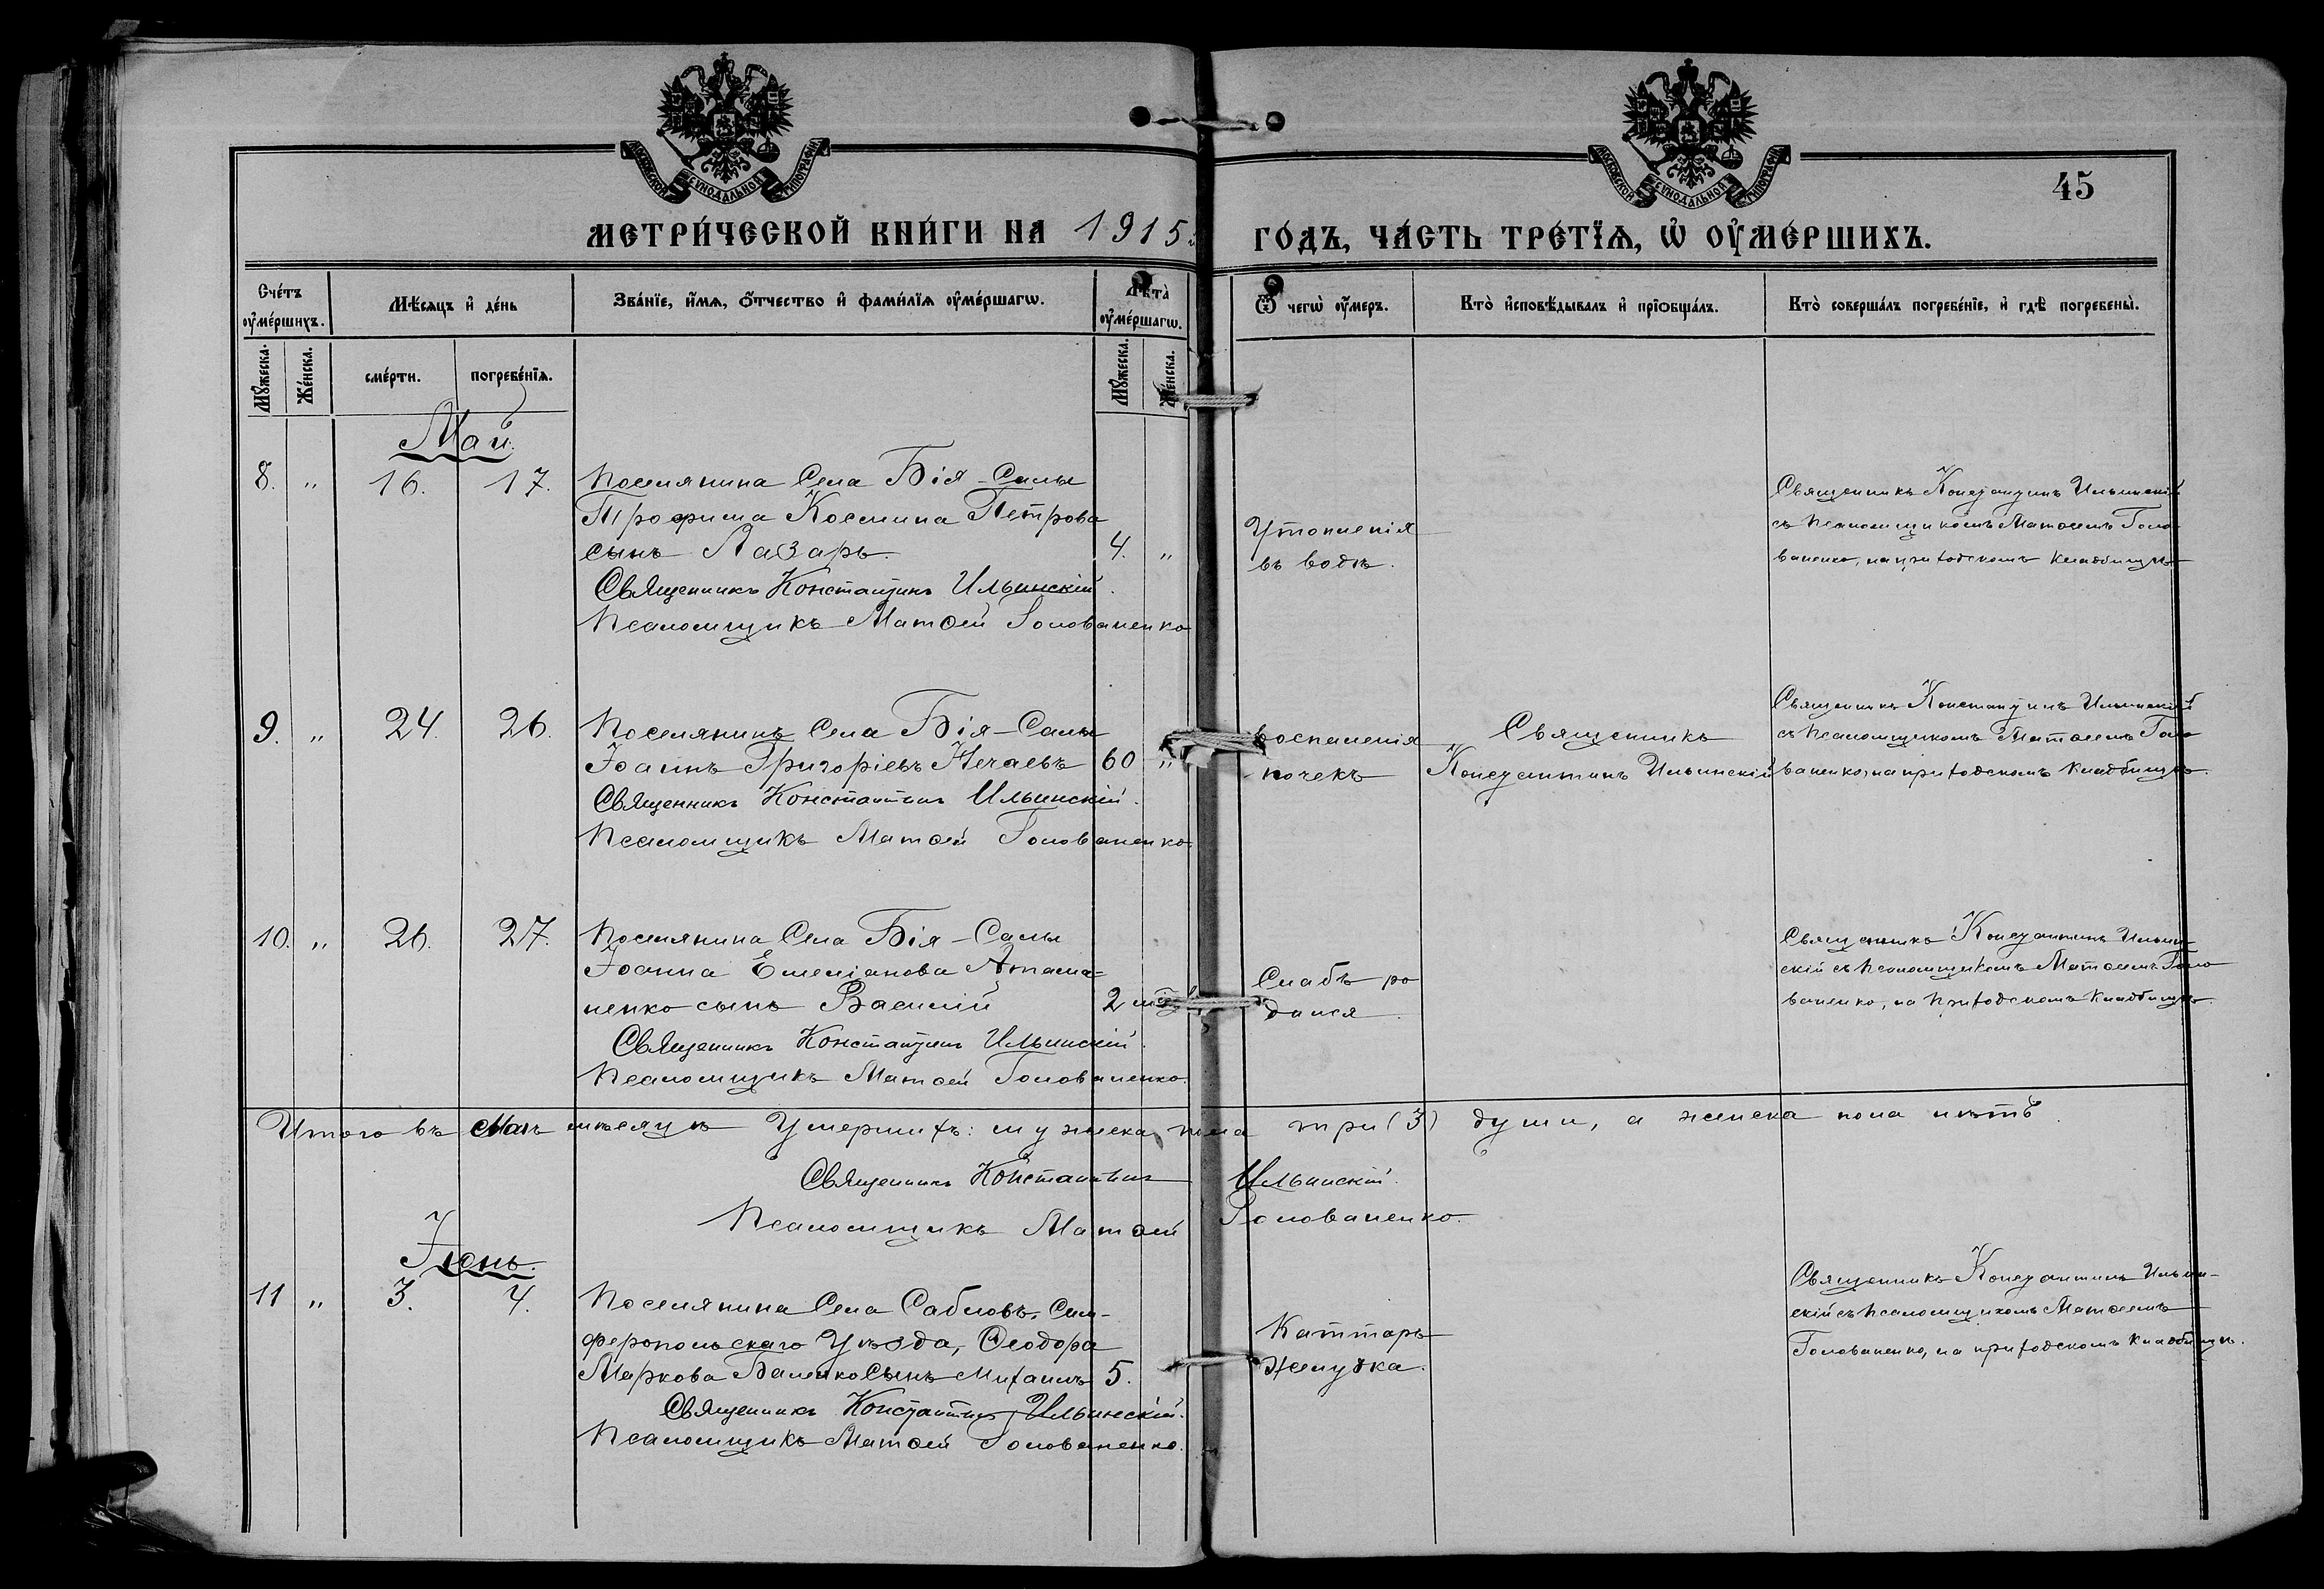 МОСКОВСКОЙ СѴНОДАЛЬНОЙ ТИПОГРАФІИ
МОСКОВСКОЙ СѴНОДАЛЬНОЙ ТИПОГРАФІИ
45
МЕТРИ́ЧЕСКОЙ КНИ́ГИ НА 1915й
ГО́ДЪ, ЧА́СТЬ ТРЕ́ТЇѦ, Ѡ҆ ОУ҆МЕ́РШИХЪ.
Сче́тъ оу҆ме́ршихъ.
Мѣ́сяцъ и҆ де́нь
Зва́нїе, и҆́мѧ, ѻ҆́тчество и҆ фами́лїѧ оу҆ме́ршагѡ.
Лѣ́та̀ оу҆ме́ршагѡ.
Ѿ чегѡ̀ оу҆́меръ.
Кто̀ и҆сповѣ́дывалъ и҆ прїѻбща́лъ.
Кто̀ соверша́лъ погребе́нїе, и҆ гдѣ̀ погребены̀.
Мꙋ́жеска.
Же́нска.
сме́рти.
погребе́нїѧ.
Мꙋ́жеска.
Же́нска.
Май.
8. „ 16. 17. Поселянина Села Бія-Салы
Трофима Косьмина Петрова
сынъ Лазарь. 4. „
Священникъ Константинъ Ильинскій.
Псаломщикъ Матѳей Голованенко
Утопленія
въ водѣ.
Священникъ Константинъ Ильинскій
съ Псаломщикомъ Матѳеемъ Голо-
ваненко, на приходскомъ кладбищѣ
9. „ 24. 26. Поселянинъ Села Бія-Салы
Іоаннъ Григоріевъ Нечаевъ 60 „
Священникъ Константинъ Ильинскій.
Псаломщикъ Матѳей Голованенко.
Воспаленія
почекъ
Священникъ
Константинъ Ильинскій
Священникъ Константинъ Ильинскій
съ Псаломщикомъ Матѳеемъ Голо
ваненко, на приходскомъ кладбищѣ.
10. „ 26. 27. Поселянина Села Бія-Салы
Іоанна Емеліанова Атама=
ненко сынъ Василій 2
Священникъ Константинъ Ильинскій.
Псаломщикъ Матѳей Голованенко.
Слабъ ро
дился.
Священникъ Константинъ Ильин-
скій съ Псаломщикомъ Матѳеемъ Голо
ваненко, на приходскомъ кладбищѣ.
Итого въ Маѣ мѣсяцѣ Умершихъ: мужеска пола три (3) души, а женска пола нѣтъ.
Священникъ Константинъ Ильинскій.
Псаломщикъ Матѳей Голованенко.
Іюнь.
11 „ 3. 4. Поселянина Села Сабловъ, Сим-
феропольскаго Уѣзда, Ѳеодора
Маркова Сынъ Михаилъ 5.
Священникъ Константинъ Ильинскій.
Псаломщикъ Матѳей Голованенко.
Каттаръ
желудка.
Священникъ Константинъ Ильин-
скій съ Псаломщикомъ Матѳеемъ
Голованенко, на приходскомъ кладбищѣ.